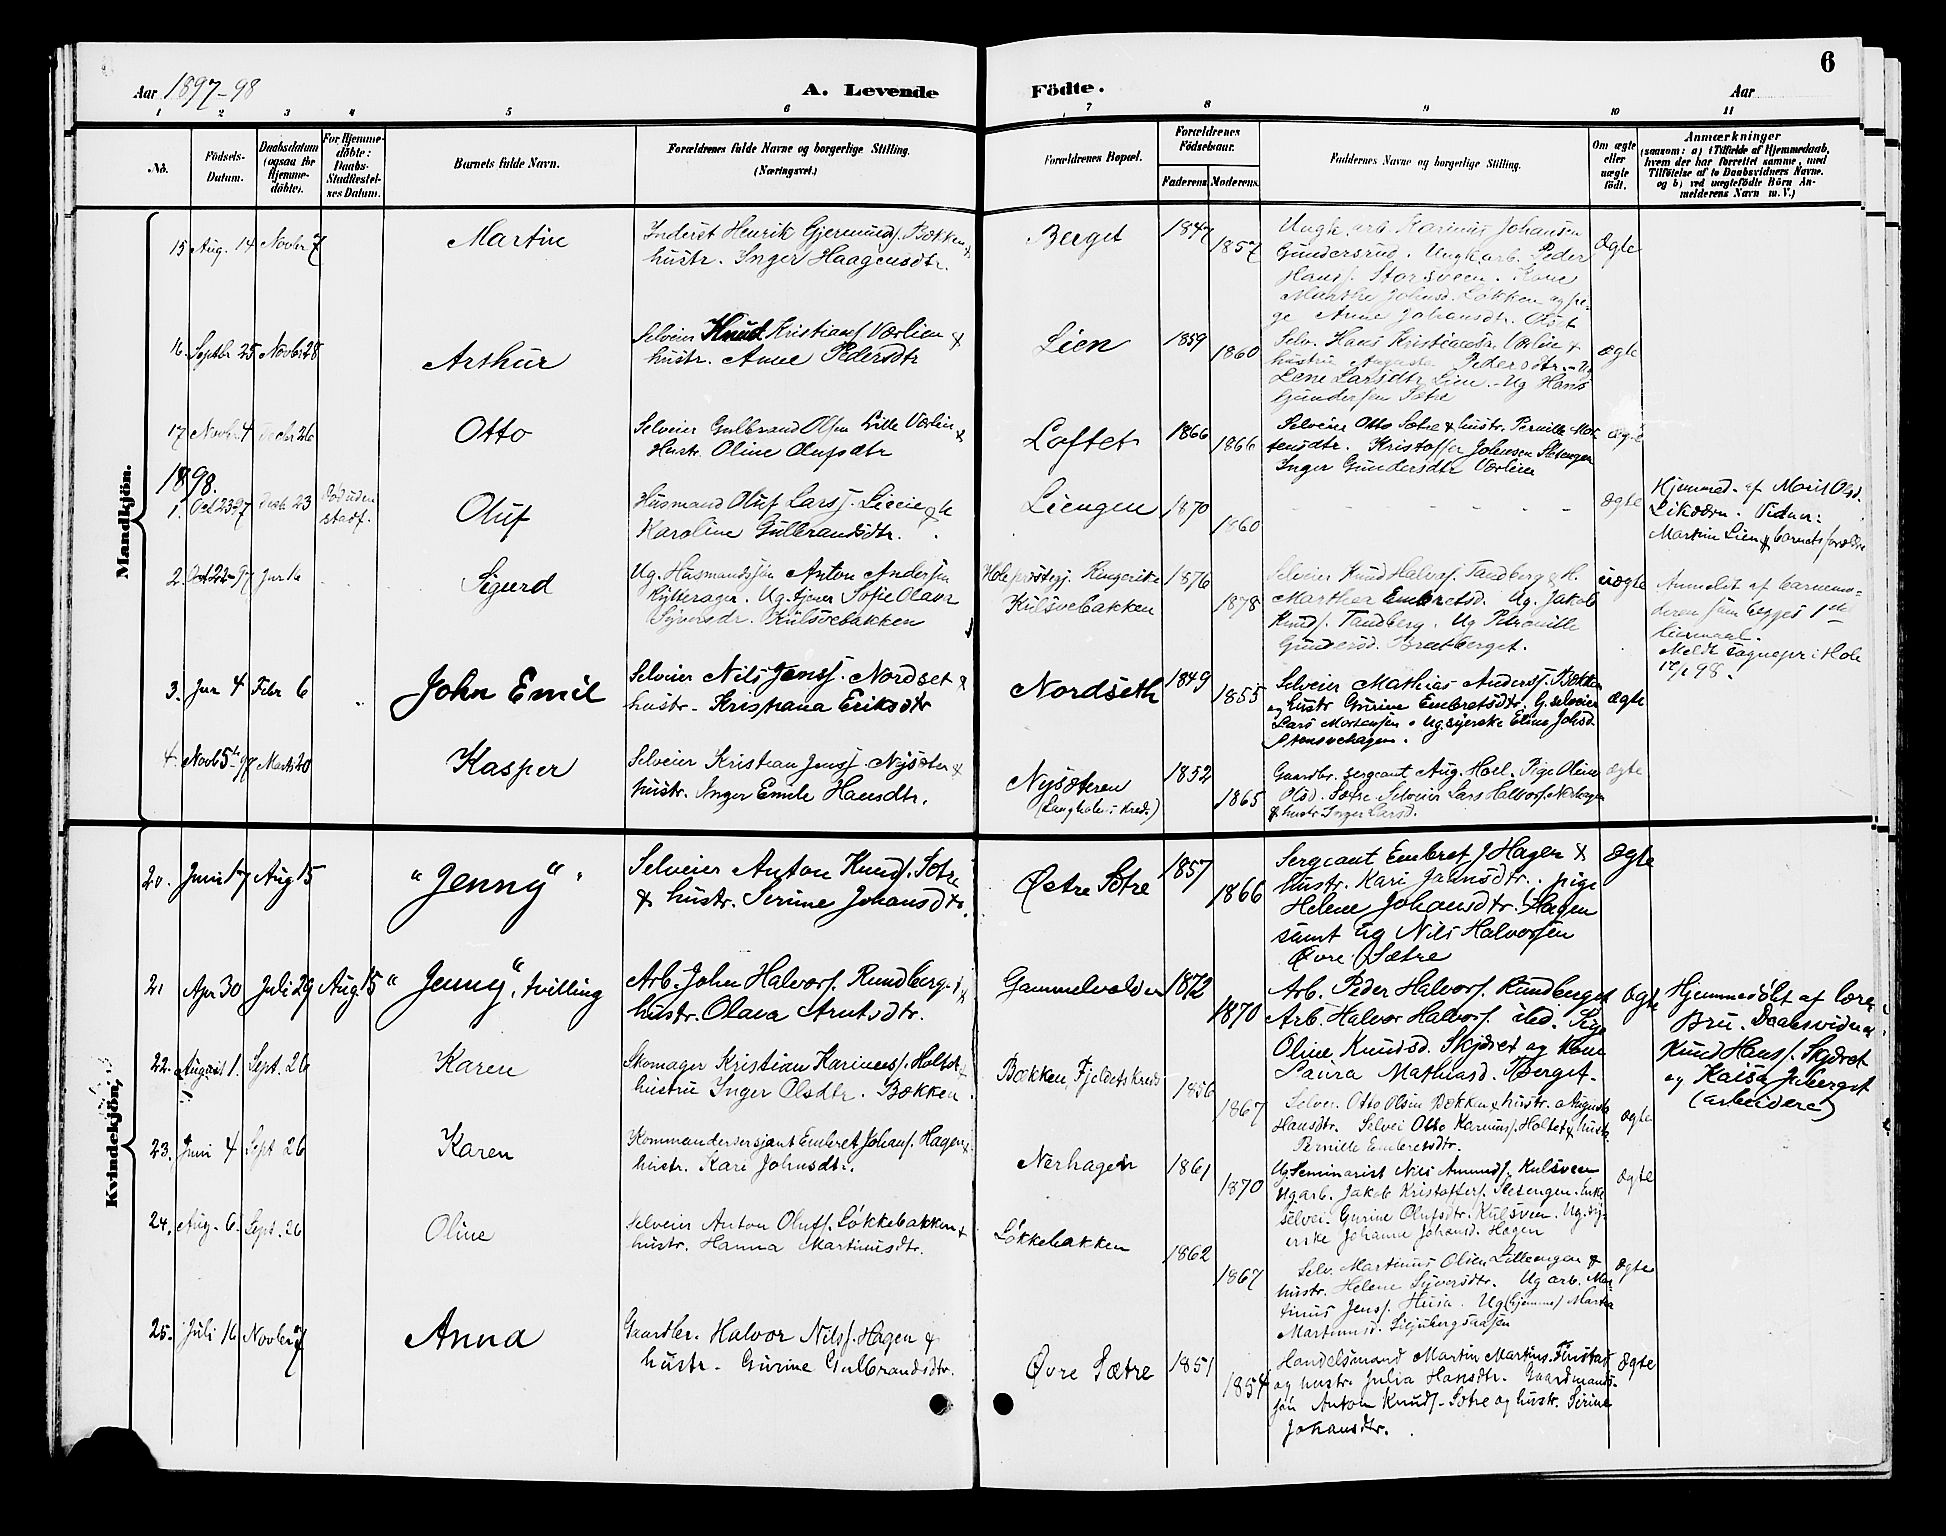 6
Aar 1897-98
A. Levende Födte.
Aar
1 2 3 4 5 6 7 8 9 10 11
No.
Födsels-
Datum.
Daabsdatum
(ogsaa for
Hjemme-
döbte).
For Hjemme-
döbte:
Daabs-
Stadfestel-
ses Datum.
Barnets fulde Navn.
Forældrenes fulde Navne og borgerlige Stilling.
(Næringsvei.)
Forældrenes Bopæl.
Forældrenes
Födselsaar.
Faderens. Moderens.
Faddernes Navne og borgerlige Stilling.
Om ægte
eller
uægte
födt.
Anmærkninger
(saasom: a) i Tilfælde af Hjemmedaab,
hvem der har forrettet samme, med
Tilföielse af to Daabsvidners Navne.
og b) ved uægtefödte Börn An-
melderens Navn m. V.)
Mandkjön.
15 Aug. 14 Novbr 7 Martin
Inderst Henrik Gjermunds. Bækken &
hustr. Inger Haagensdtr.
Berget 1847 1857
Ungk. arb. Karinus Johansen
Gundersrud. Ungk arb. Peder
Hans. Storsveen. Kone
Marthe Johnsd. Løkken og pi-
ge Anne Johansdtr.
Ægte
16. Septbr 25 Novbr 28 Arthur
Selveier Knud Kristians. Værlien &
hustr. Anne Pedersdtr
Lien 1859 1860
Selv. Hans Kristiansen Værlie &
hustru Auguste Pedersdtr. - Ug
Lene Larsdtr Lien. - Ug Hans
Gundersen Sætre
ægte
17 Novbr 4 Decbr 26 Otto
Selveier Gulbrand Olsen Lille Værlien &
Hustr. Oline Olufsdtr
Loftet 1866 1866
Selveier Otto Sætre & hustr. Pernille Mor-
tensdtr. Kristoffer Johnsen Sletengen
Inger Gundersdtr Værlien
ægte
1898.
1. Oct 23 97 Decb 23 Død uden
stadf.
Oluf
Husmand Oluf Lars. Lien &
Karoline Gulbrandsdtr.
Liengen 1870 1860
ægte
Hjemmed. af Marit Olsd.
Likværn. Vidner:
Martin Lien & barnets forældre
2. Oct 22-97 Jan 16 Sigurd
Ug. Husmandssøn Anton Andersen
Rytterager. Ug. tjener Sofie Olava
Syversdr. Kulsvebakken
Hole præstegj. Ringerike
Kulsvebakken
1876 1878
Selveier Knud Halvors. Tandberg & H.
Marthea Embretsd. Ug. Jakob
Knuds. Tandberg. Ug Petronille
Gundersd. Bratberget.
uægte
Anmeldt af barnemo-
deren som begges 1ste
leiermaal.
Meldt sognepr i Hole
98.
3. Jan 4 Febr 6 John Emil
Selveier Nils Jens. Nordset &
hustr. Kristiana Eriksdtr
Nordseth 1849 1855
Selveier Mathias Anders. Bækken
og hustr Gurine Embretsdtr. G. selveier
Lars Mortensen. Ug syerske Eline Johsd.
Stensvehagen.
ægte
4. Novb 5te 97 Marts 20 Kasper
Selveier Kristian Jens. Nysæter &
hustr. Inger Emilie Hansdtr.
Nysæteren
1852 1865
Gaardbr. sergeant Aug. Hoel. Pige Oline
Olsd. Sætre. Selveier Lars Halvors.
& hustr Inger Larsd.
ægte
Kvindekjön.
20. Juni 17 Aug 15 "Jenny"
Selveier Anton Knuds. Sætre
& hustr. Serine Johansdtr.
Østre Sætre 1857 1866
Sergeant Embret J Hagen &
hustr. Kari Johnsdtr. pige
Helene Johansdtr. Hagen
samt ug Nils Halvorsen
Øvre Sætre
Ægte
21 Apr 30 Juli 29 Aug. 15 "Jenny", tvilling
Arb. John Halvors. Rundberg. &
hustr. Olava Arntsdtr.
Gammelvolden 1872 1870
Arb. Peder Halvors. Rundberget
Arb. Halvor Halvors. ibd. Pige
Oline Knudsd. Skjæret og Kone
Laura Mathiasd. Berget.
Ægte
Hjemmedøbt af Lars
Bru. Daabsvidner
Knud Hans. Skjæret
og Kaisa Joberget
(arbeidere)
22. August 1. Sept. 26 Karen
Skomager Kristian Karinus. Holtet &
hustru Inger Olsdtr. Bækken
Bækken Fjeldets kreds 1856 1867
Selvei. Otto Olsen Bækken & hustr. Augusta
Hansdtr. Selvei Otto Karinus. Holtet & hustr.
Pernille Embretsdtr.
ægte
23. Juni 4 Sept 26 Karen
Kommandersersjant Embret Johans. Hagen &
hustr. Kari Johnsdtr.
Nerhagen 1861 1870
Ug Seminarist Nils Amunds. Kulsveen
Ug arb. Jakob Kristoffers. Sletengen. Enke
selvei. Gurine Olufsdtr. Kulsveen. Ug. sy-
erske Johanne Johansd. Hagen
ægte
24. Aug. 6. Sept. 26 Oline
Selveier Anton Olufs. Løkkebakken &
hustr. Hanna Martinusdtr.
Løkkebakken 1862 1867
Selv. Martinus Olsen Lilleengen &
hustr. Helene Syversdtr. Ug arb. Mar-
tinus Jens. Husa. Ug (hjemme) Martea
Martinusd. Siljubergsaasen
ægte
25. Juli 16 Novbr 7 Anna
Gaardbr. Halvor Nils. Hagen &
hustr. Gurine Gulbrandsdtr.
Øvre Sætre 1851 1854
Handelsmand Martin Martins. Finstad
og hustr. Julia Hansdtr. Gaardmands-
søn Anton Knuds. Sætre og hustr. Serine
Johansdtr.
Ægte